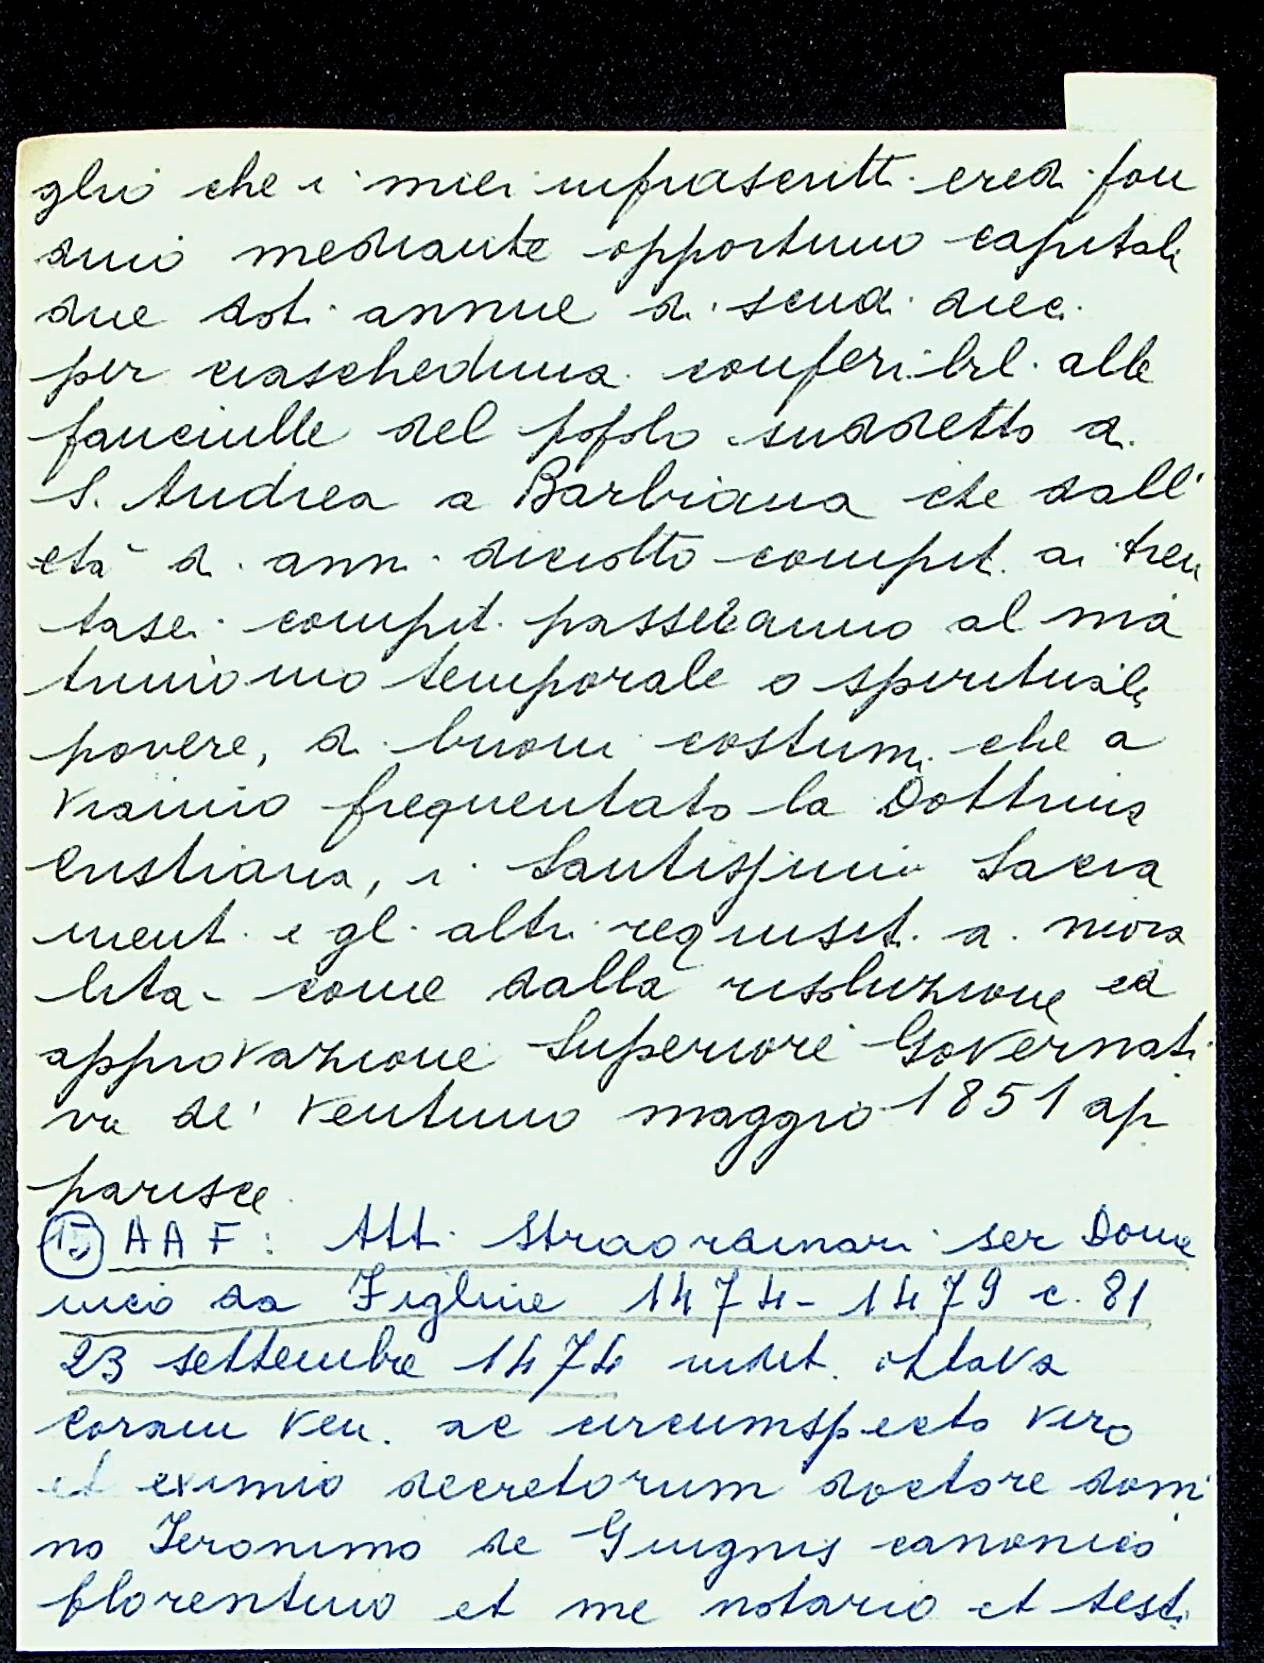 glio che i miei infrascritti eredi fon
dino mediante opportuno capitale
due doti annue di scudi dieci
per ciascheduna conferibili alle
fanciulle del popolo suddetto di
S. Andrea a Barbiana che dall'
età di anni diciotto compiti ai tren
tasei compiti passeranno al ma
trimonio temporale o spirituale
povere, di buoni costumi che a
vranno frequentato la Dottrina
Cristiana, i Santissimi Sacra
menti e gli altri requisiti di mora
lità come dalla risoluzione ed
approvazione Superiore Governati
va de' ventuno maggio 1851 ap
parisce
15 AAF: Atti Straordinari ser Dome
nico da Figline 1474-1479 c. 81
23 settembre 1474 indit. ottava
coram ven. ac circumspecto viro
et eximio decretorum doctore domi
no Ieronimo de Giugnis canonico
florentino et me notario et testi